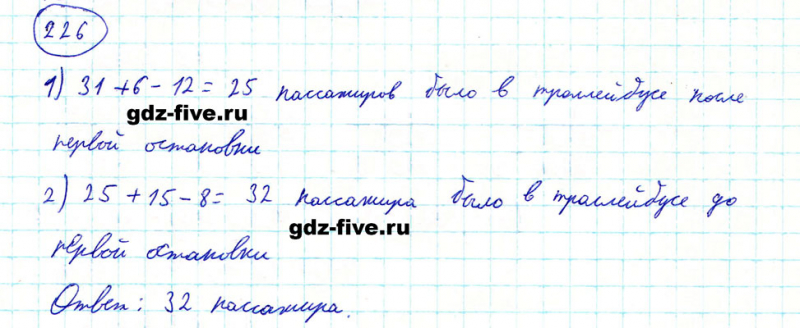 226
1) 31 + 6 - 12 = 25 пассажиров было в троллейбусе после
gdz-five.ru
первой остановки
2) 25 + 15 - 8 = 32 пассажира было в троллейбусе до
gdz-five.ru
первой остановки
Ответ: 32 пассажира.